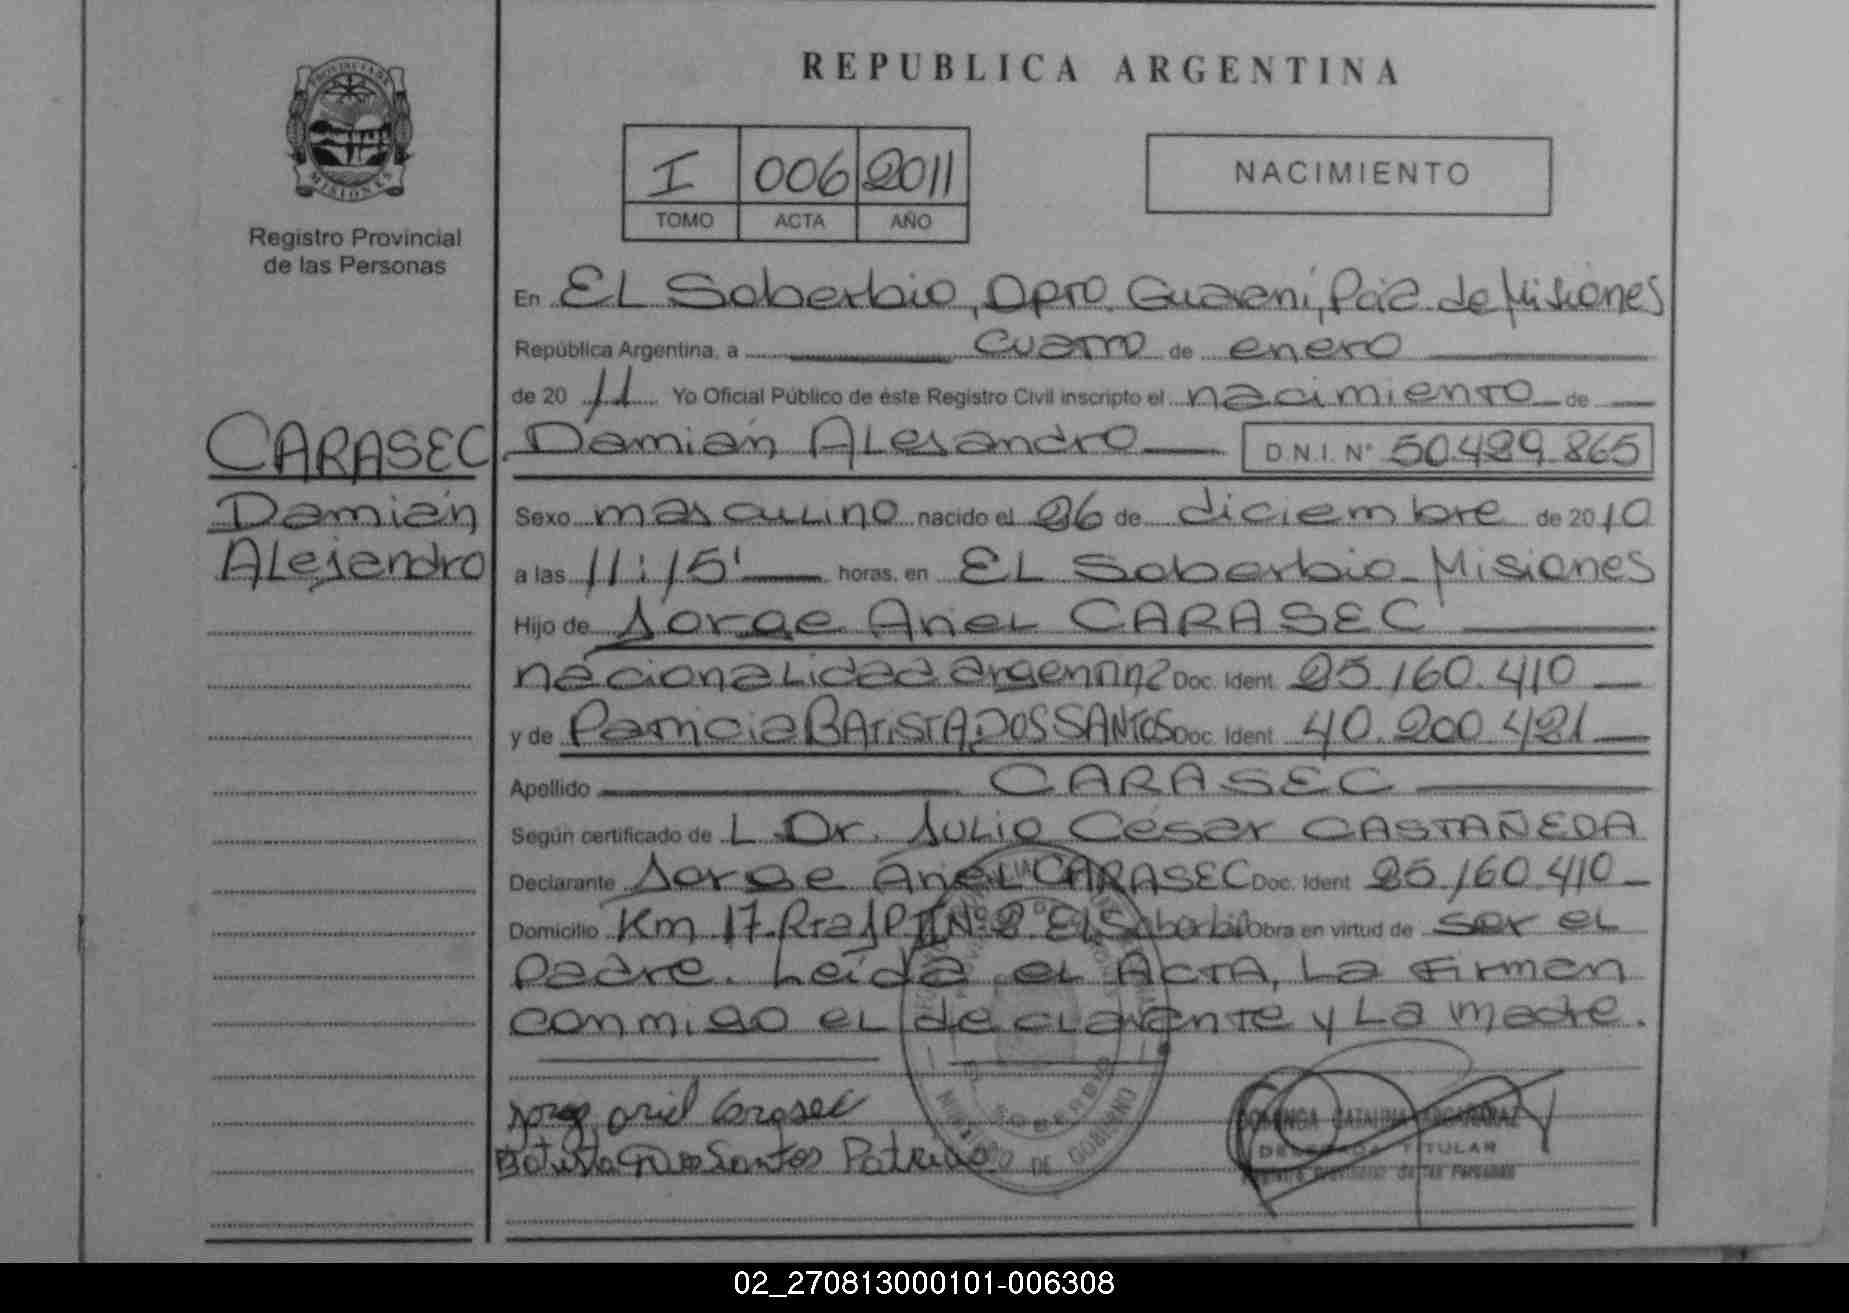 REPUBLICA ARGENTINA
PROVINCIA DE
MISIONES
Registro Provincial
de las Personas
I 006 2011
TOMO ACTA AÑO
NACIMIENTO
En EL Soberbio, Dpto. Guarani, Pcia. de Misiones
República Argentina, a cuatro de enero
de 20 11 Yo Oficial Público de éste Registro Civil inscripto el nacimiento de
CARASEC
Damián
Alejandro
Damián Alejandro D.N.I. N° 50.429.865
Sexo masculino nacido el 26 de diciembre de 2010
a las 11:15' horas, en EL Soberbio - Misiones
Hijo de Jorge Ariel CARASEC
nacionalidad argentina Doc. Ident. 25.160.410
y de Patricia BATISTA DOS SANTOS Doc. Ident. 40.200.421
Apellido CARASEC
Según certificado de L Dr. Julio César CASTAÑEDA
Declarante Jorge Ariel CARASEC Doc. Ident. 25.160.410
Domicilio Km 17. Rta N° 2 El Soberbio Obra en virtud de ser el
padre. Leída el ACTA, La firman
conmigo el declarante y La madre.
Jorge ariel Carasec
Batista Dos Santos Patricia
SOBERBIO
MINISTERIO DE GOBIERNO
CATALINA
TITULAR
de las Personas
02_270813000101-006308